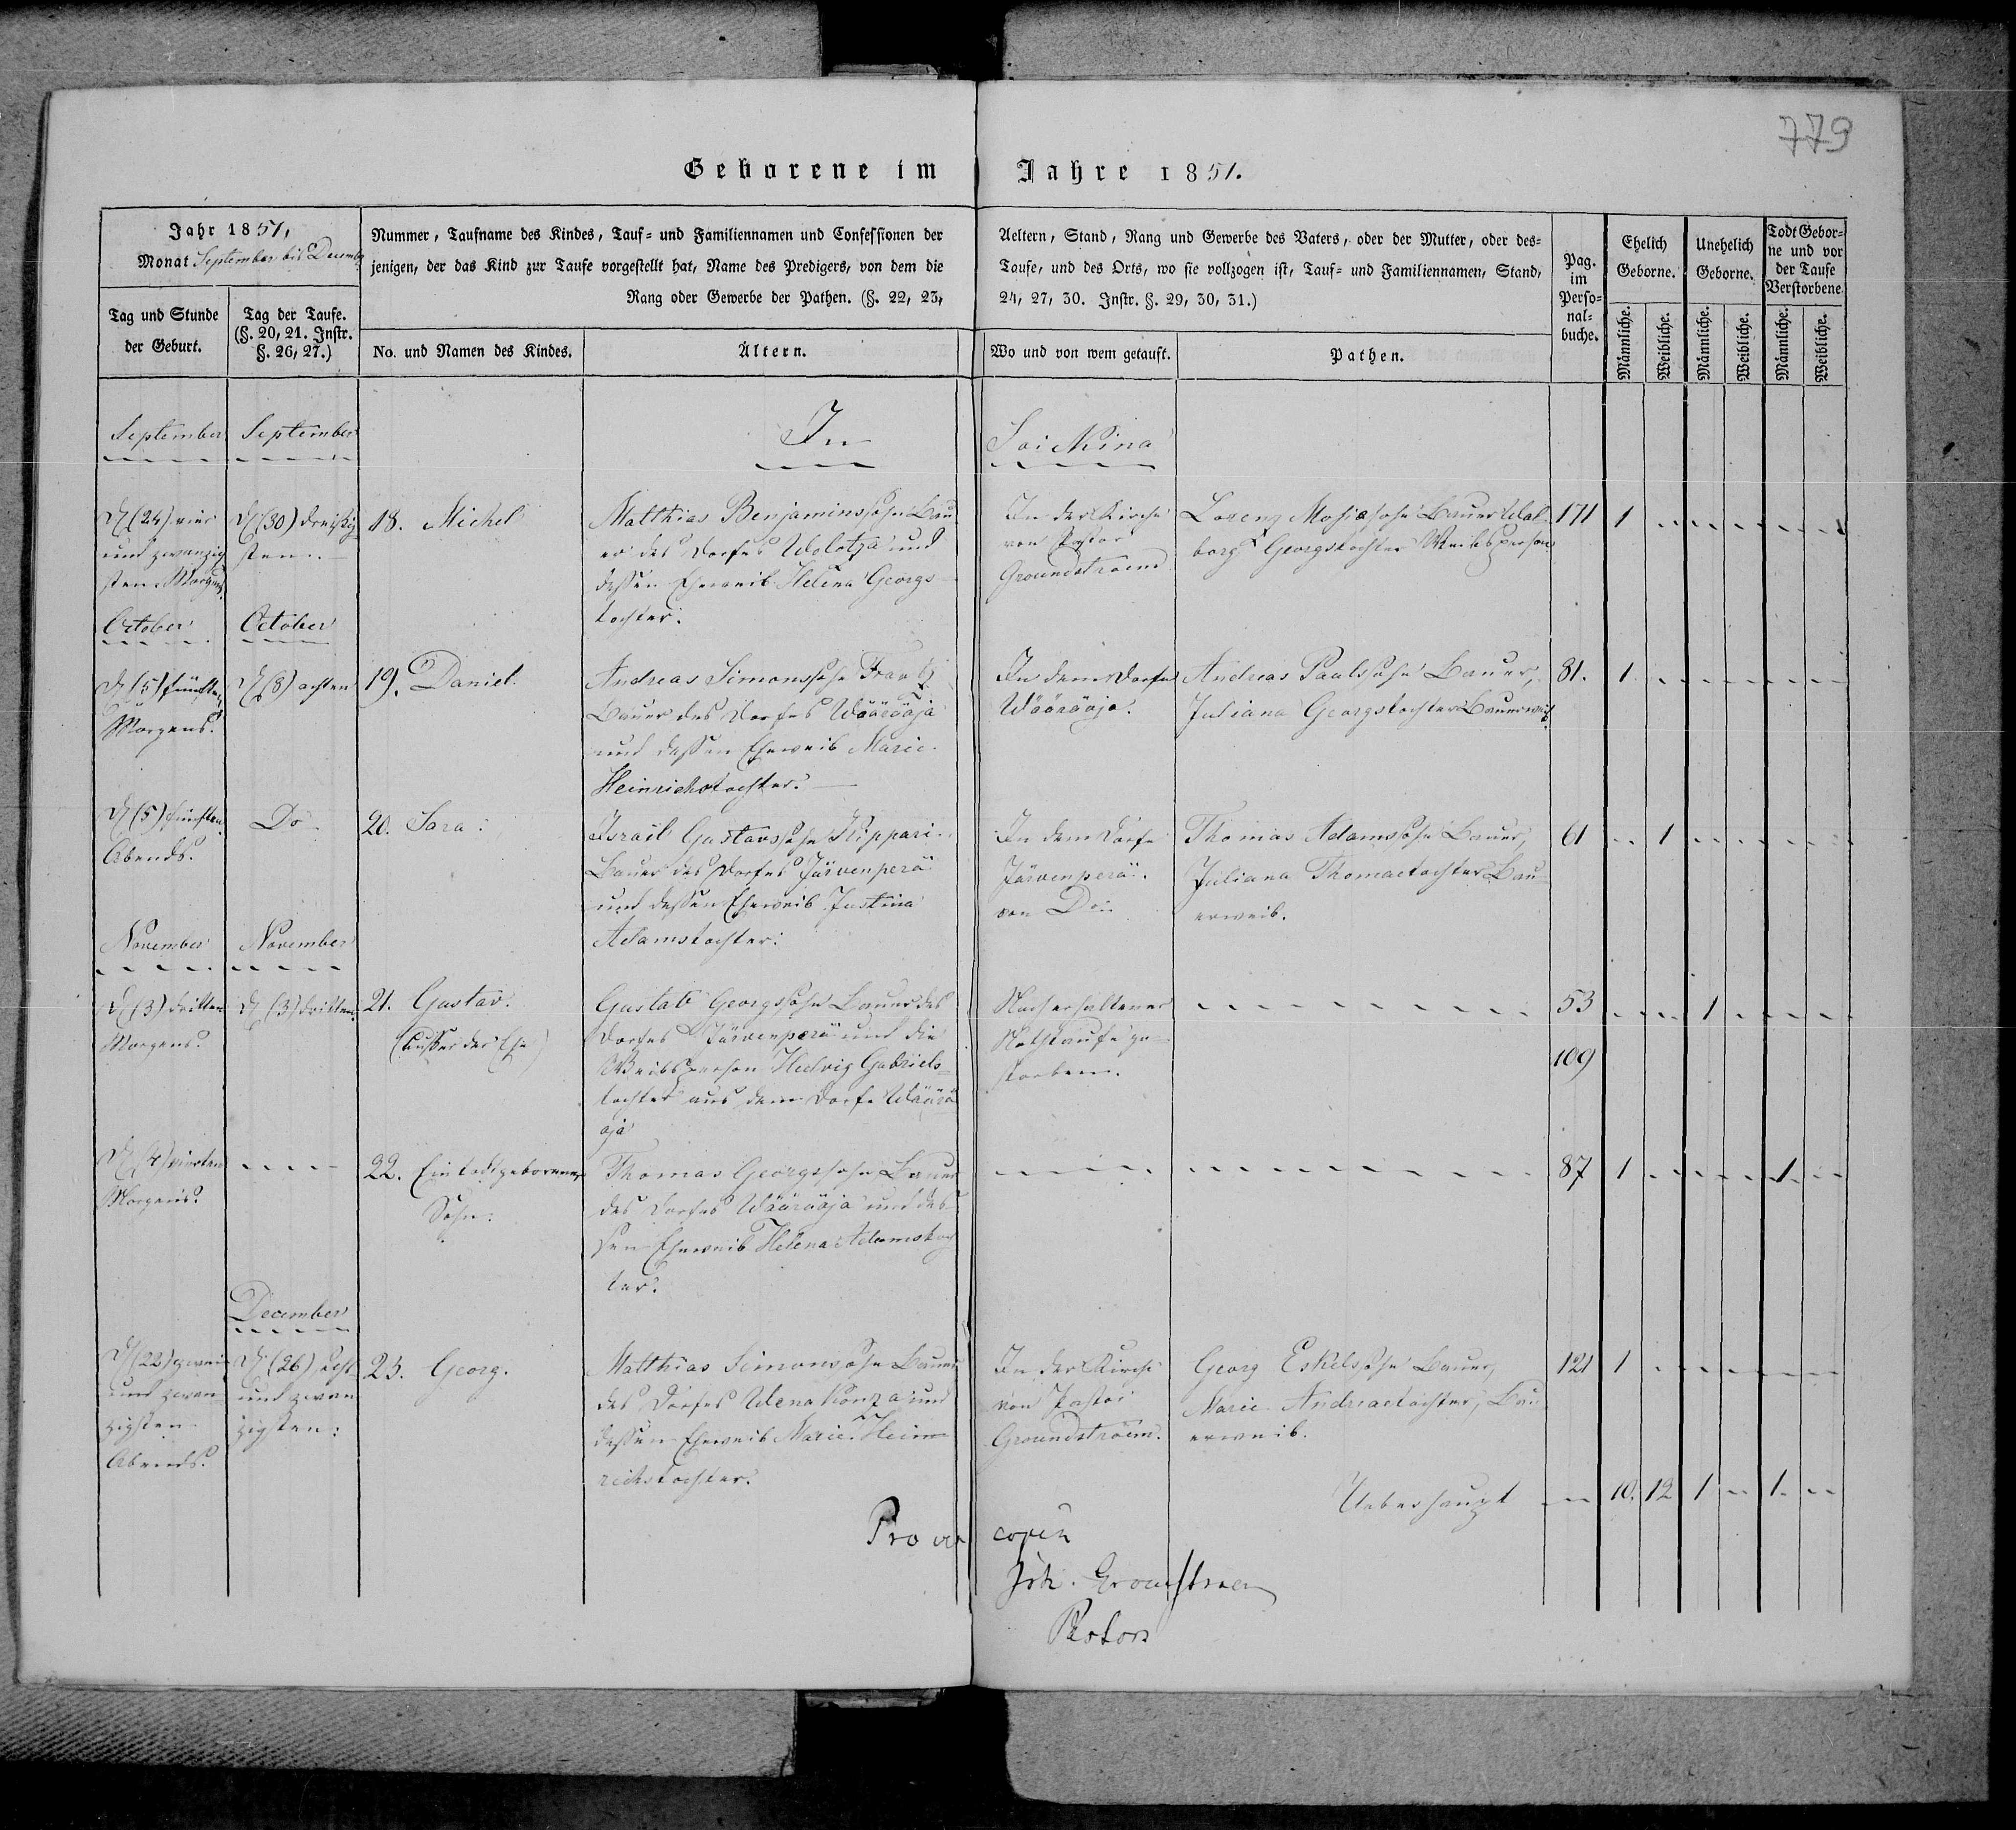 779
Geborene im Jahre 1851.
Jahr 1851,
Monat September bis December
Nummer, Taufname des Kindes, Tauf- und Familiennamen und Confessionen der Aeltern, Stand, Rang und Gewerbe des Vaters, oder der Mutter, oder des-
jenigen, der das Kind zur Taufe vorgestellt hat, Name des Predigers, von dem die Taufe, und des Orts, wo sie vollzogen ist, Tauf- und Familiennamen, Stand,
Rang oder Gewerbe der Pathen. (§. 22, 23, 24, 27, 30. Instr. §. 29, 30, 31.)
Tag und Stunde
der Geburt.
Tag der Taufe.
(§. 20, 21. Instr.
§. 26, 27.)
No. und Namen des Kindes.
Ältern.
Wo und von wem getauft.
Pathen.
Pag.
im
Perso-
nal-
buche.
Ehelich
Geborne.
Unehelich
Geborne.
Todt Gebor-
ne und vor
der Taufe
Verstorbene
Männliche.
Weibliche.
Männliche.
Weibliche.
Männliche.
Weibliche.
September
September
In Soickina
D (24) vier
und zwanzig
sten Morgens.
D (30) dreißig
sten.
18. Michel
Matthias Benjaminssohn Bau
er des Dorfes Wolotza und
dessen Eheweib Helena Georgs
tochter.
In der Kirche
von Pastor
Groundstroem
Lorenz Mosiaesohn Bauer Wal
borg Georgstochter Weibsperson
171
1
October
October
D (5) fünften
Morgens.
D (8) achten
19. Daniel.
Andreas Simonssohn
Bauer des Dorfes Wääräoja
und dessen Eheweib Marie
Heinrichstochter.
In dem Dorfe
Wääräoja.
Andreas Paulssohn Bauer,
Juliana Georgstochter Bauerweib.
81.
1
D (5) fünften
Abends.
Do
20. Sara.
Israël Gustavssohn Kippari
Bauer des Dorfes Järvenperä
und dessen Eheweib Justina
Adamstochter.
In dem Dorfe
Järvenperä.
von Do
Thomas Adamssohn Bauer,
Juliana Thomaetochter Bau
erweib.
61
1
November
November
D (3) dritten
Morgens.
D (3) dritten.
21. Gustav.
(Außer der Ehe)
Gustav Georgssohn Bauer des
Dorfes Järvenperä und die
Weibsperson Hedvig Gabriels-
tochter aus dem Dorfe Wäärä
oja
Nach erhaltener
Nothtaufe ge-
storben.
53
109
1
D (4) vierten
Morgens.
22. Ein todtgeborener
Sohn.
Thomas Georgssohn Bauer
des Dorfes Wääräoja und des
sen Eheweib Helena Adamstoch
ter.
87
1
1
December
D (22) zwei
und zwan
zigsten
Abends.
D (26) sechs
und zwan
zigsten.
23. Georg.
Matthias Simonssohn Bauer
des Dorfes Wenakonza und
dessen Eheweib Marie Hein
richstochter.
In der Kirche
von Pastor
Groundstroem.
Georg Eskelssohn Bauer,
Marie Andreaetochter, Bau
erweib.
121
1
Ueberhaupt
10. 12 1 1.
Pro vera copia
Joh. Groundstroem
Pastor